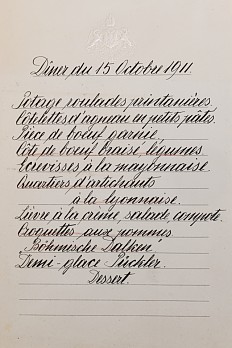 Dîner du 15 Octobre 1911.
Potage roulades printanières.
Côtelettes d'agneau en petits pâtés.
Pièce de boeuf garnie.
Côte de boeuf braisé, légumes.
Ecrevisses à la mayonnaise
Quartiers d'artichauts
à la lyonnaise.
Lièvre à la crême, salade, compote.
Croquettes aux pommes
"Böhmische Dalken"
Demi-glace Pückler.
Dessert.